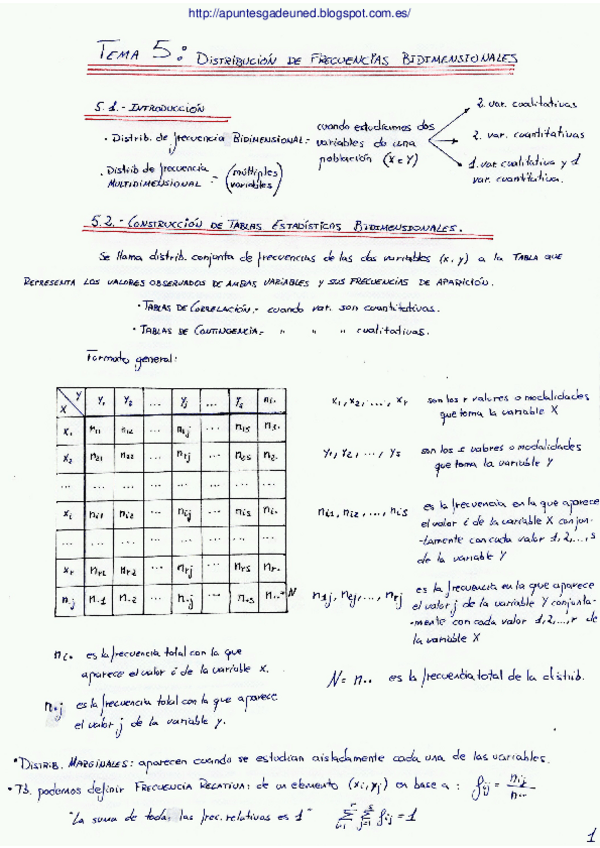 http://apuntesgadeuned.blogspot.com.es/
TEMA 5: DISTRIBUCIÓN DE FRECUENCIAS BIDIMENSIONALES
5.1.- INTRODUCCIÓN
• Distrib. de frecuencia BIDIMENSIONAL: cuando estudiamos dos variables de una población (X e Y)
2 var. cualitativas
2 var. cuantitativas
1 var. cualitativa y 1 var. cuantitativa.
• Distrib de frecuencia MULTIDIMENSIONAL = (múltiples variables)
5.2.- CONSTRUCCIÓN DE TABLAS ESTADÍSTICAS BIDIMENSIONALES.
Se llama distrib. conjunta de frecuencias de las dos variables (x, y) a la TABLA QUE
REPRESENTA LOS VALORES OBSERVADOS DE AMBAS VARIABLES Y SUS FRECUENCIAS DE APARICIÓN.
• TABLAS DE CORRELACIÓN.- cuando var. son cuantitativas.
• TABLAS DE CONTINGENCIA.- " " " cualitativas.
Formato general:
X Y y1 y2 ... yj ... ys ni.
x1 n11 n12 ... n1j ... n1s n1.
x2 n21 n22 ... n2j ... n2s n2.
... ... ... ... ... ... ... ...
xi ni1 ni2 ... nij ... nis ni.
... ... ... ... ... ... ... ...
xr nr1 nr2 ... nrj ... nrs nr.
n.j n.1 n.2 ... n.j ... n.s n.. = N
x1, x2, ..., xr son los r valores o modalidades
que toma la variable X
y1, y2, ..., ys son los s valores o modalidades
que toma la variable Y
ni1, ni2, ..., nis es la frecuencia en la que aparece
el valor i de la variable X conjun-
-tamente con cada valor 1,2,...,s
de la variable Y
n1j, n2j, ..., nrj es la frecuencia en la que aparece
el valor j de la variable Y conjunta-
-mente con cada valor 1,2,...,r de
la variable X
ni. es la frecuencia total con la que
aparece el valor i de la variable X.
n.j es la frecuencia total con la que aparece
el valor j de la variable y.
N = n.. es la frecuencia total de la distrib.
• DISTRIB. MARGINALES: aparecen cuando se estudian aisladamente cada una de las variables.
• Tb. podemos definir FRECUENCIA RELATIVA: de un elemento (xi, yj) en base a: fij = nij / n..
"La suma de todas las frec. relativas es 1" Σ i=1 r Σ j=1 s fij = 1
1